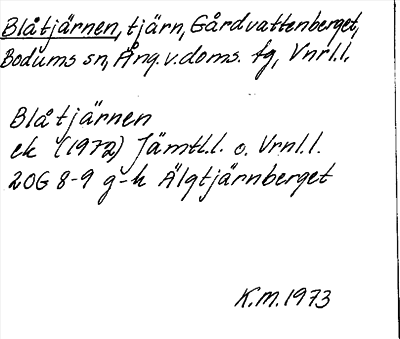 Blåtjärnen, tjärn, Gårdvattenberget,
Bodums sn, Ång. v. doms. fg, Vnrl.l.
Blåtjärnen
ek (1972) Jämtl.l. o. Vrnl.l.
20G 8-9 g-h Älgtjärnberget
K.M. 1973